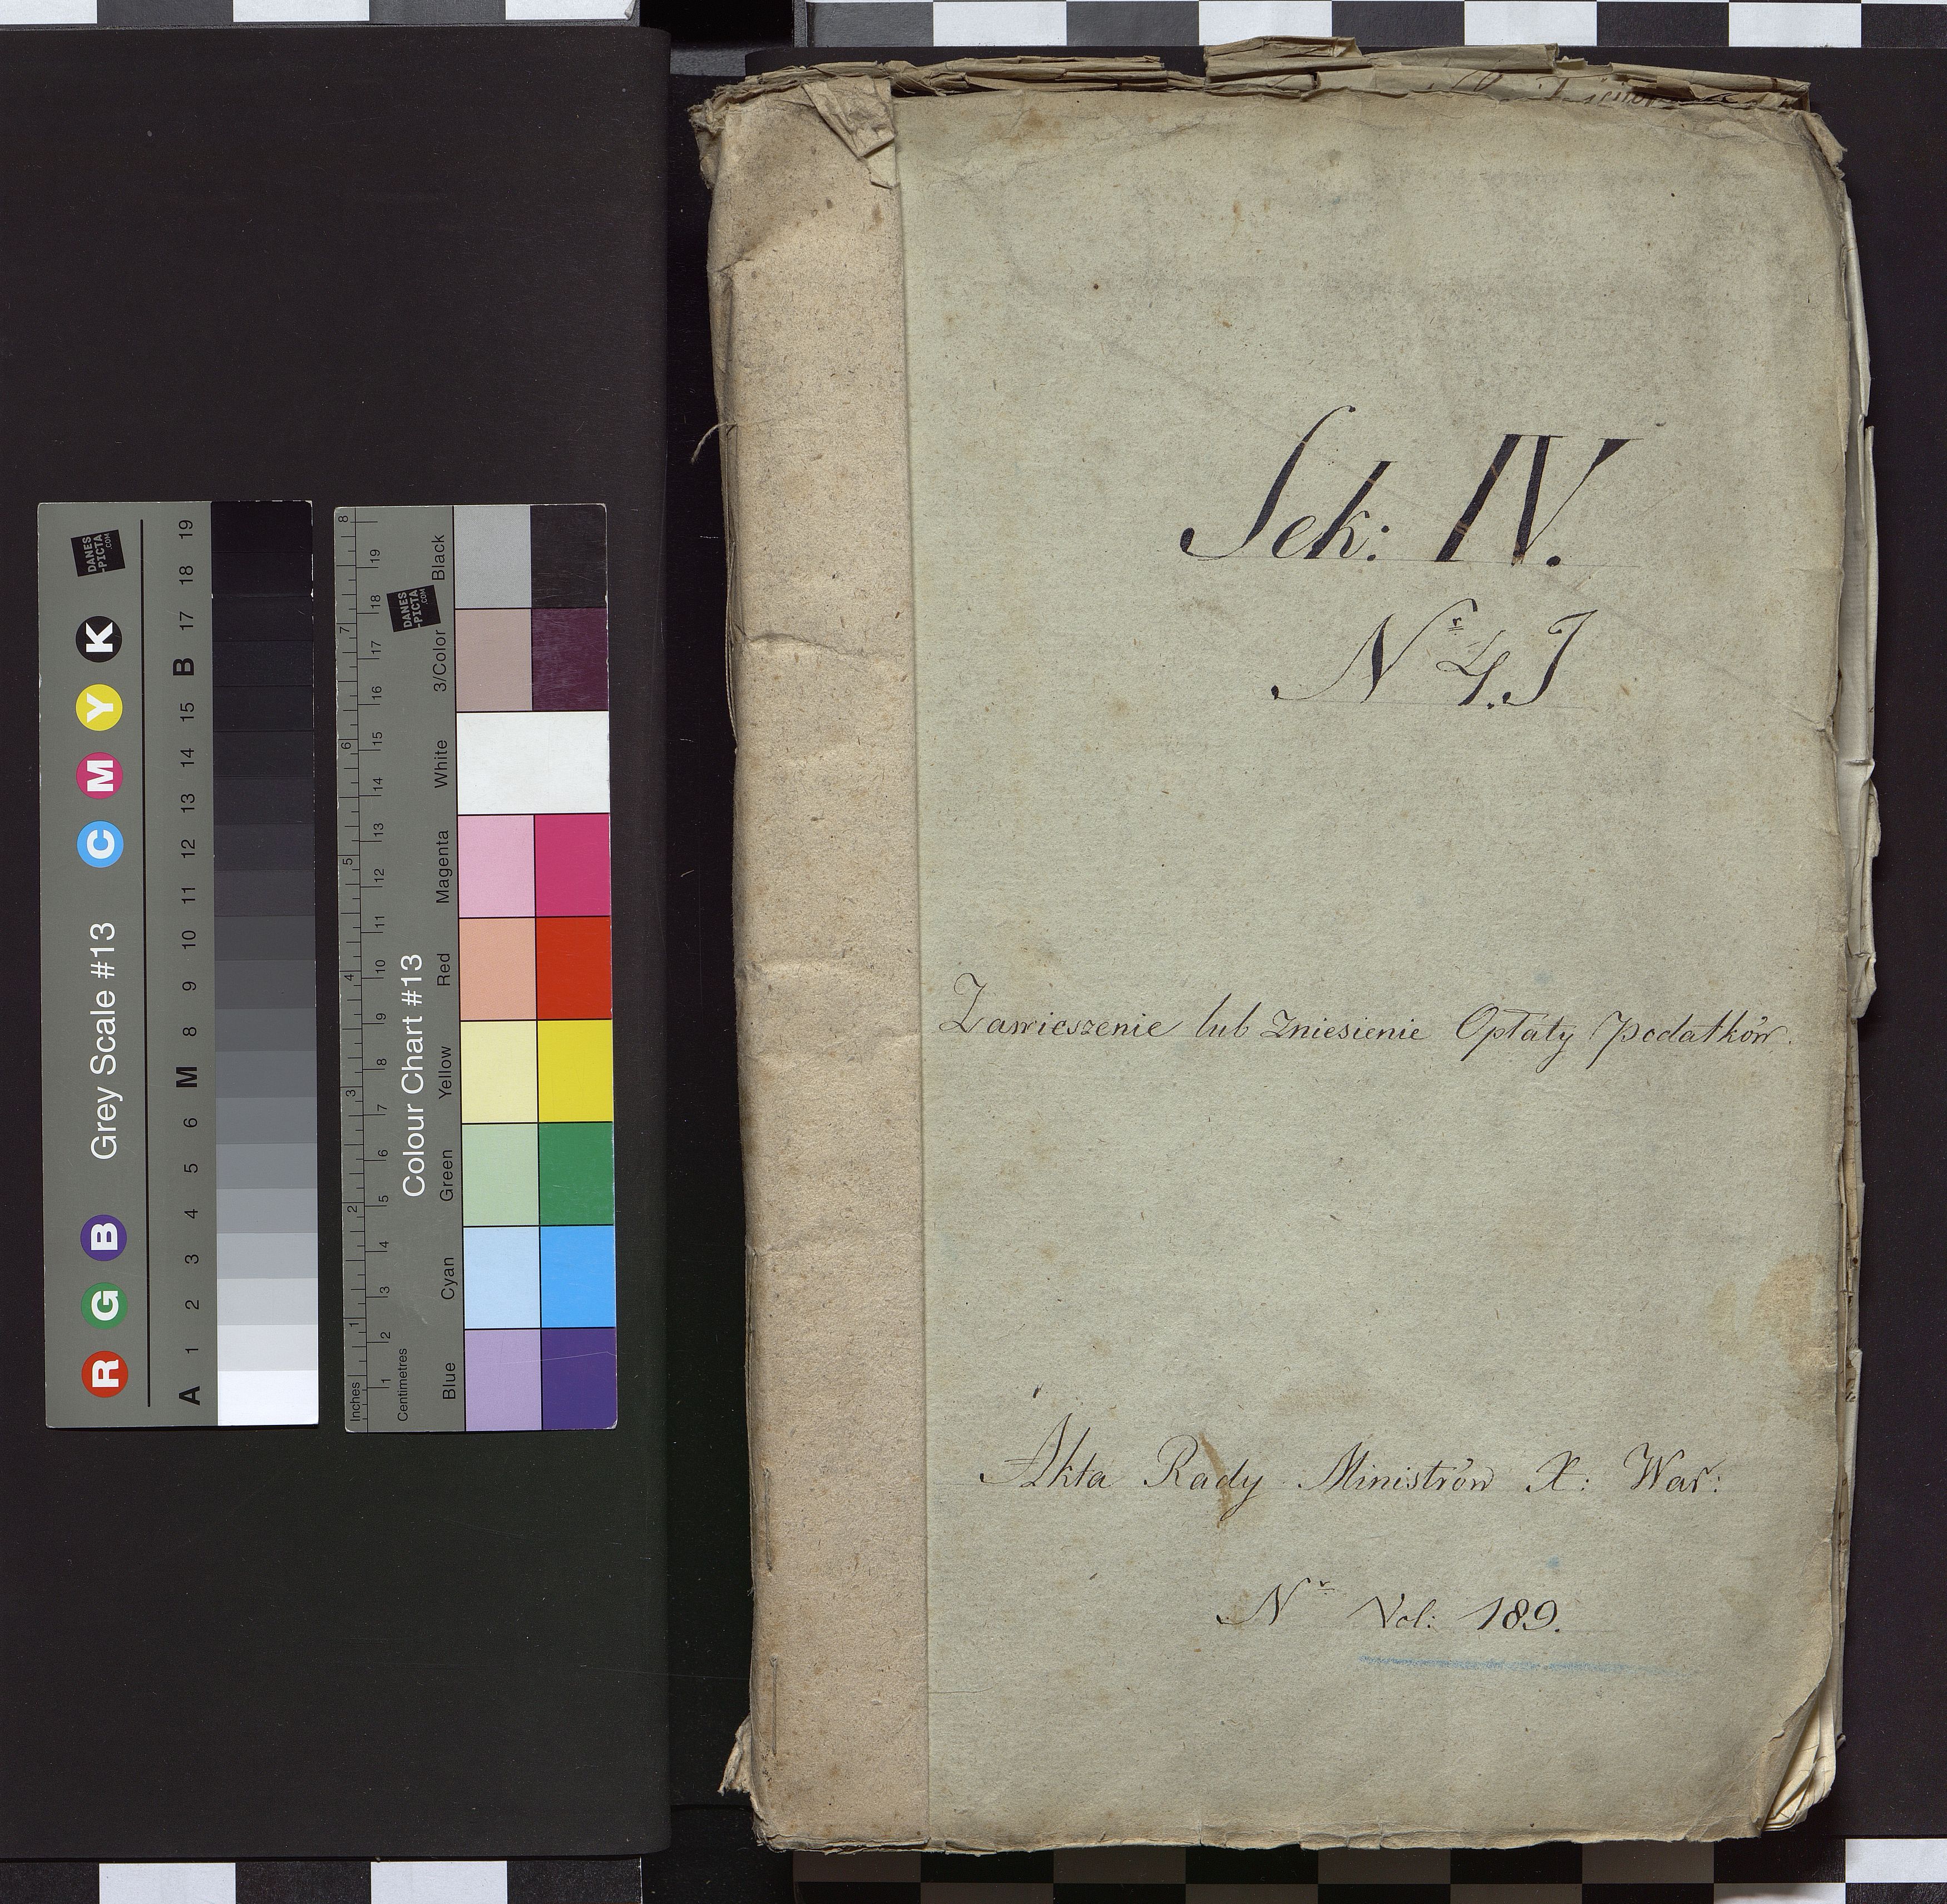 Sek: IV.
Nr 4. J
Zawieszenie lub Zniesienie Opłaty Podatków.
Akta Rady Ministrów X: War:
Nr Vol: 189.
Grey Scale #13
R G B C M Y K
A 1 2 3 4 5 6 M 8 9 10 11 12 13 14 15 B 17 18 19
DANES
-PICTA
.COM
Colour Chart #13
Blue Cyan Green Yellow Red Magenta White 3/Color Black
Inches 1 2 3 4 5 6 7 8
Centimetres 1 2 3 4 5 6 7 8 9 10 11 12 13 14 15 16 17 18 19
DANES
-PICTA
.COM